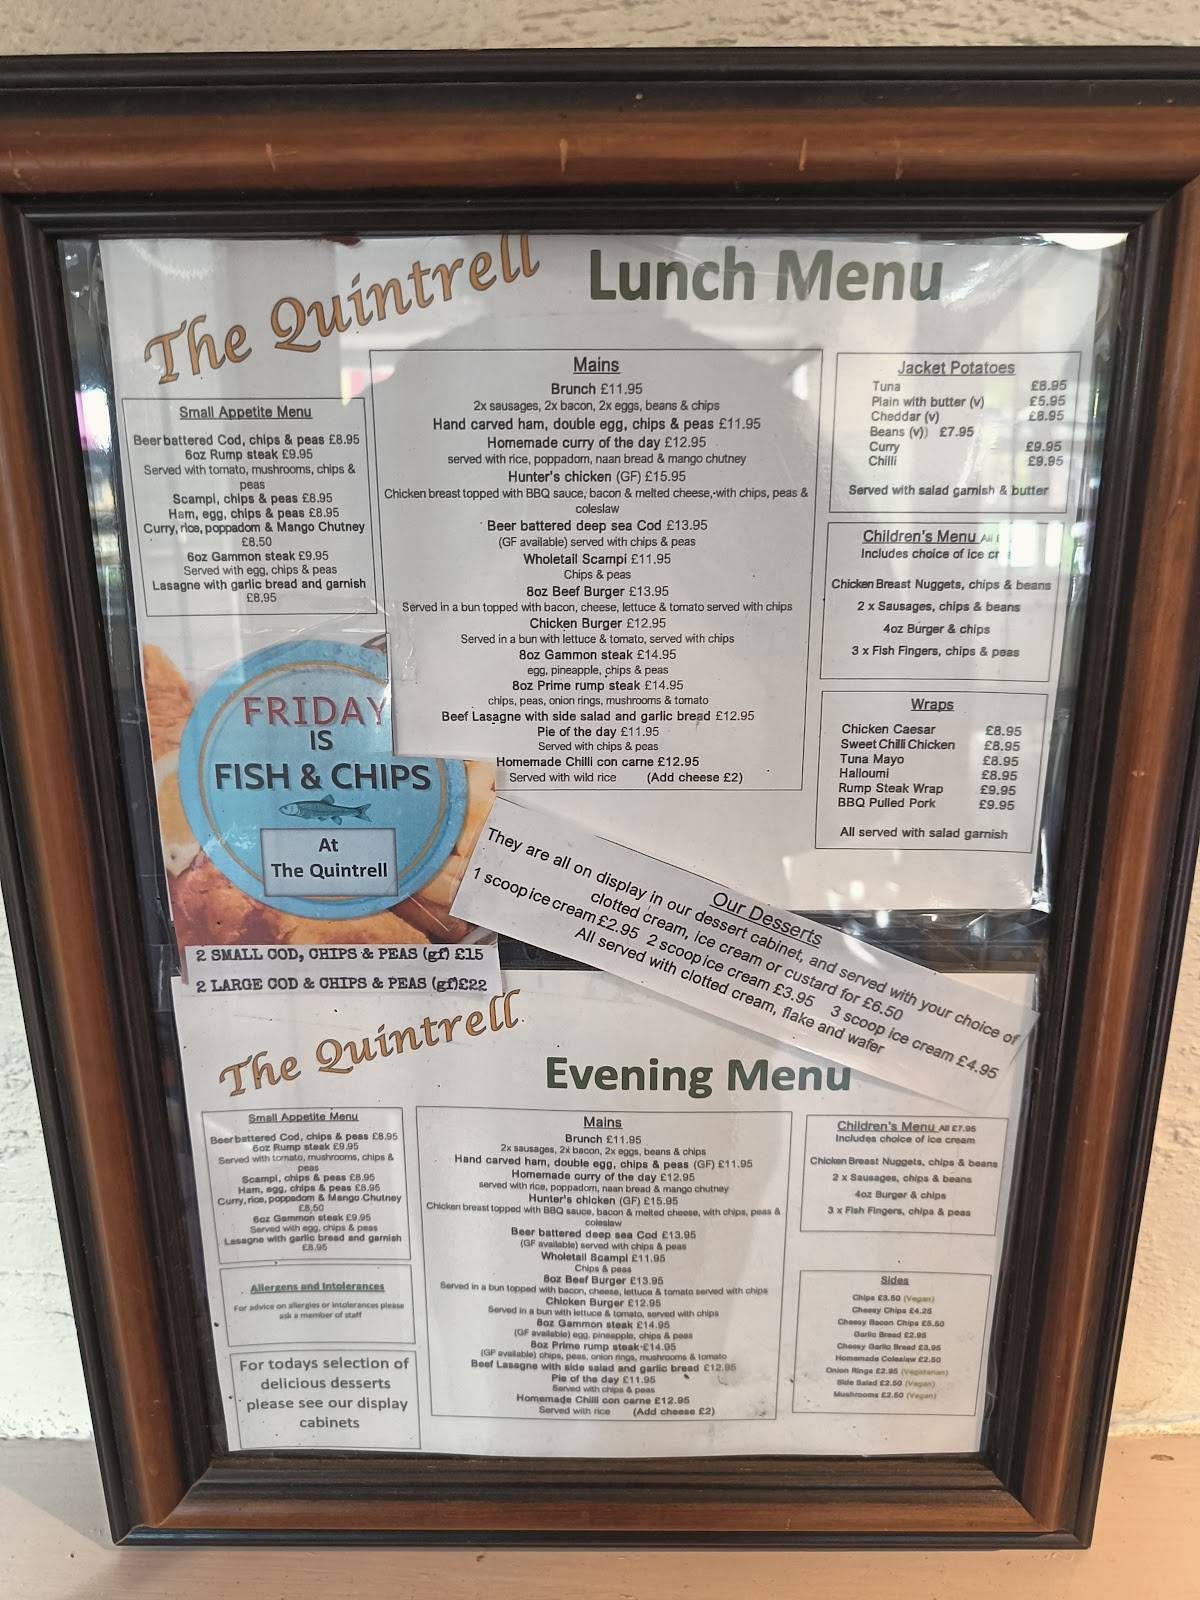 The Quintrell
Lunch Menu
Small Appetite Menu
Beer battered Cod, chips & peas £8.95
6oz Rump steak £9.95
Served with tomato, mushrooms, chips &
peas
Scampi, chips & peas £8.95
Ham, egg, chips & peas £8.95
Curry, rice, poppadom & Mango Chutney
£8.50
6oz Gammon steak £9.95
Served with egg, chips & peas
Lasagne with garlic bread and garnish
£8.95
Mains
Brunch £11.95
2x sausages, 2x bacon, 2x eggs, beans & chips
Hand carved ham, double egg, chips & peas £11.95
Homemade curry of the day £12.95
served with rice, poppadom, naan bread & mango chutney
Hunter's chicken (GF) £15.95
Chicken breast topped with BBQ sauce, bacon & melted cheese, with chips, peas &
coleslaw
Beer battered deep sea Cod £13.95
(GF available) served with chips & peas
Wholetail Scampi £11.95
Chips & peas
8oz Beef Burger £13.95
Served in a bun topped with bacon, cheese, lettuce & tomato served with chips
Chicken Burger £12.95
Served in a bun with lettuce & tomato, served with chips
8oz Gammon steak £14.95
egg, pineapple, chips & peas
8oz Prime rump steak £14.95
chips, peas, onion rings, mushrooms & tomato
Beef Lasagne with side salad and garlic bread £12.95
Pie of the day £11.95
Served with chips & peas
Homemade Chilli con carne £12.95
Served with wild rice (Add cheese £2)
Jacket Potatoes
Tuna £8.95
Plain with butter (v) £5.95
Cheddar (v) £8.95
Beans (v)) £7.95
Curry £9.95
Chilli £9.95
Served with salad garnish & butter
Children's Menu All £
Includes choice of ice cr
Chicken Breast Nuggets, chips & beans
2 x Sausages, chips & beans
4oz Burger & chips
3 x Fish Fingers, chips & peas
Wraps
Chicken Caesar £8.95
Sweet Chilli Chicken £8.95
Tuna Mayo £8.95
Halloumi £8.95
Rump Steak Wrap £9.95
BBQ Pulled Pork £9.95
All served with salad garnish
FRIDAY
IS
FISH & CHIPS
At
The Quintrell
2 SMALL COD, CHIPS & PEAS (gf) £15
2 LARGE COD & CHIPS & PEAS (gf)£22
Our Desserts
They are all on display in our dessert cabinet, and served with your choice of
clotted cream, ice cream or custard for £6.50
1 scoop ice cream £2.95 2 scoop ice cream £3.95 3 scoop ice cream £4.95
All served with clotted cream, flake and wafer
The Quintrell
Evening Menu
Small Appetite Menu
Beer battered Cod, chips & peas £8.95
6oz Rump steak £9.95
Served with tomato, mushrooms, chips &
peas
Scampi, chips & peas £8.95
Ham, egg, chips & peas £8.95
Curry, rice, poppadom & Mango Chutney
£8.50
6oz Gammon steak £9.95
Served with egg, chips & peas
Lasagne with garlic bread and garnish
£8.95
Allergens and Intolerances
For advice on allergies or intolerances please
ask a member of staff
For todays selection of
delicious desserts
please see our display
cabinets
Mains
Brunch £11.95
2x sausages, 2x bacon, 2x eggs, beans & chips
Hand carved ham, double egg, chips & peas (GF) £11.95
Homemade curry of the day £12.95
served with rice, poppadom, naan bread & mango chutney
Hunter's chicken (GF) £15.95
Chicken breast topped with BBQ sauce, bacon & melted cheese, with chips, peas &
coleslaw
Beer battered deep sea Cod £13.95
(GF available) served with chips & peas
Wholetail Scampi £11.95
Chips & peas
8oz Beef Burger £13.95
Served in a bun topped with bacon, cheese, lettuce & tomato served with chips
Chicken Burger £12.95
Served in a bun with lettuce & tomato, served with chips
8oz Gammon steak £14.95
(GF available) egg, pineapple, chips & peas
8oz Prime rump steak £14.95
(GF available) chips, peas, onion rings, mushrooms & tomato
Beef Lasagne with side salad and garlic bread £12.95
Pie of the day £11.95
Served with chips & peas
Homemade Chilli con carne £12.95
Served with rice (Add cheese £2)
Children's Menu All £7.95
Includes choice of ice cream
Chicken Breast Nuggets, chips & beans
2 x Sausages, chips & beans
4oz Burger & chips
3 x Fish Fingers, chips & peas
Sides
Chips £3.50 (Vegan)
Cheesy Chips £4.25
Cheesy Bacon Chips £5.50
Garlic Bread £2.95
Cheesy Garlic Bread £3.95
Homemade Coleslaw £2.50
Onion Rings £2.95 (Vegetarian)
Side Salad £2.50 (Vegan)
Mushrooms £2.50 (Vegan)